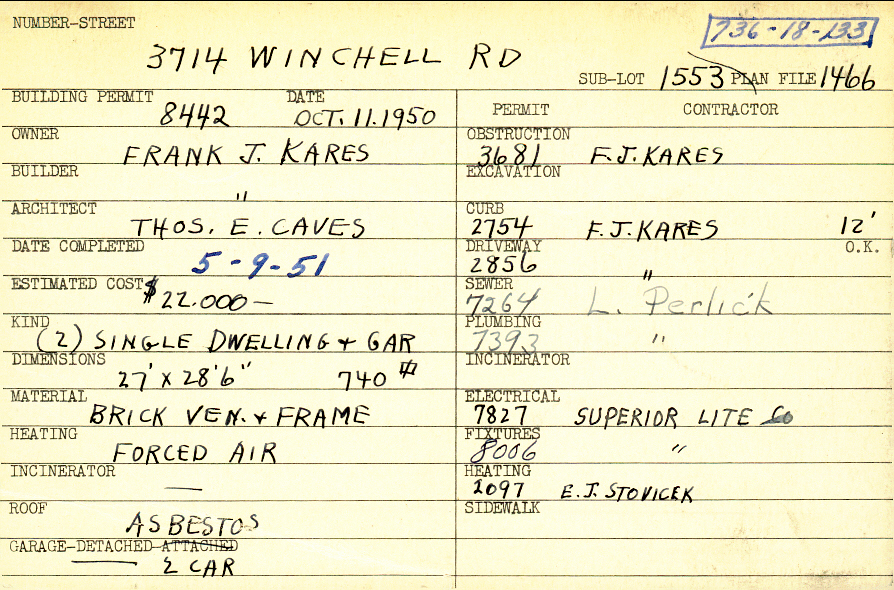 NUMBER-STREET
736-18-133
3714 WINCHELL RD
SUB-LOT 1553 PLAN FILE 1466
BUILDING PERMIT 8442 DATE OCT. 11. 1950
OWNER FRANK J. KARES
BUILDER "
ARCHITECT THOS. E. CAVES
DATE COMPLETED 5-9-51
ESTIMATED COST $22.000—
KIND (2) SINGLE DWELLING + GAR
DIMENSIONS 27' X 28'6" 740 #
MATERIAL BRICK VEN. + FRAME
HEATING FORCED AIR
INCINERATOR —
ROOF ASBESTOS
GARAGE-DETACHED-ATTACHED
2 CAR
PERMIT CONTRACTOR
OBSTRUCTION 3681 F.J. KARES
EXCAVATION
CURB 2754 F.J. KARES 12'
DRIVEWAY 2856 " O.K.
SEWER 7264 L. Perlick
PLUMBING 7393 "
INCINERATOR
ELECTRICAL 7827 SUPERIOR LITE Co
FIXTURES 8006 "
HEATING 2097 E.J. STOVICEK
SIDEWALK